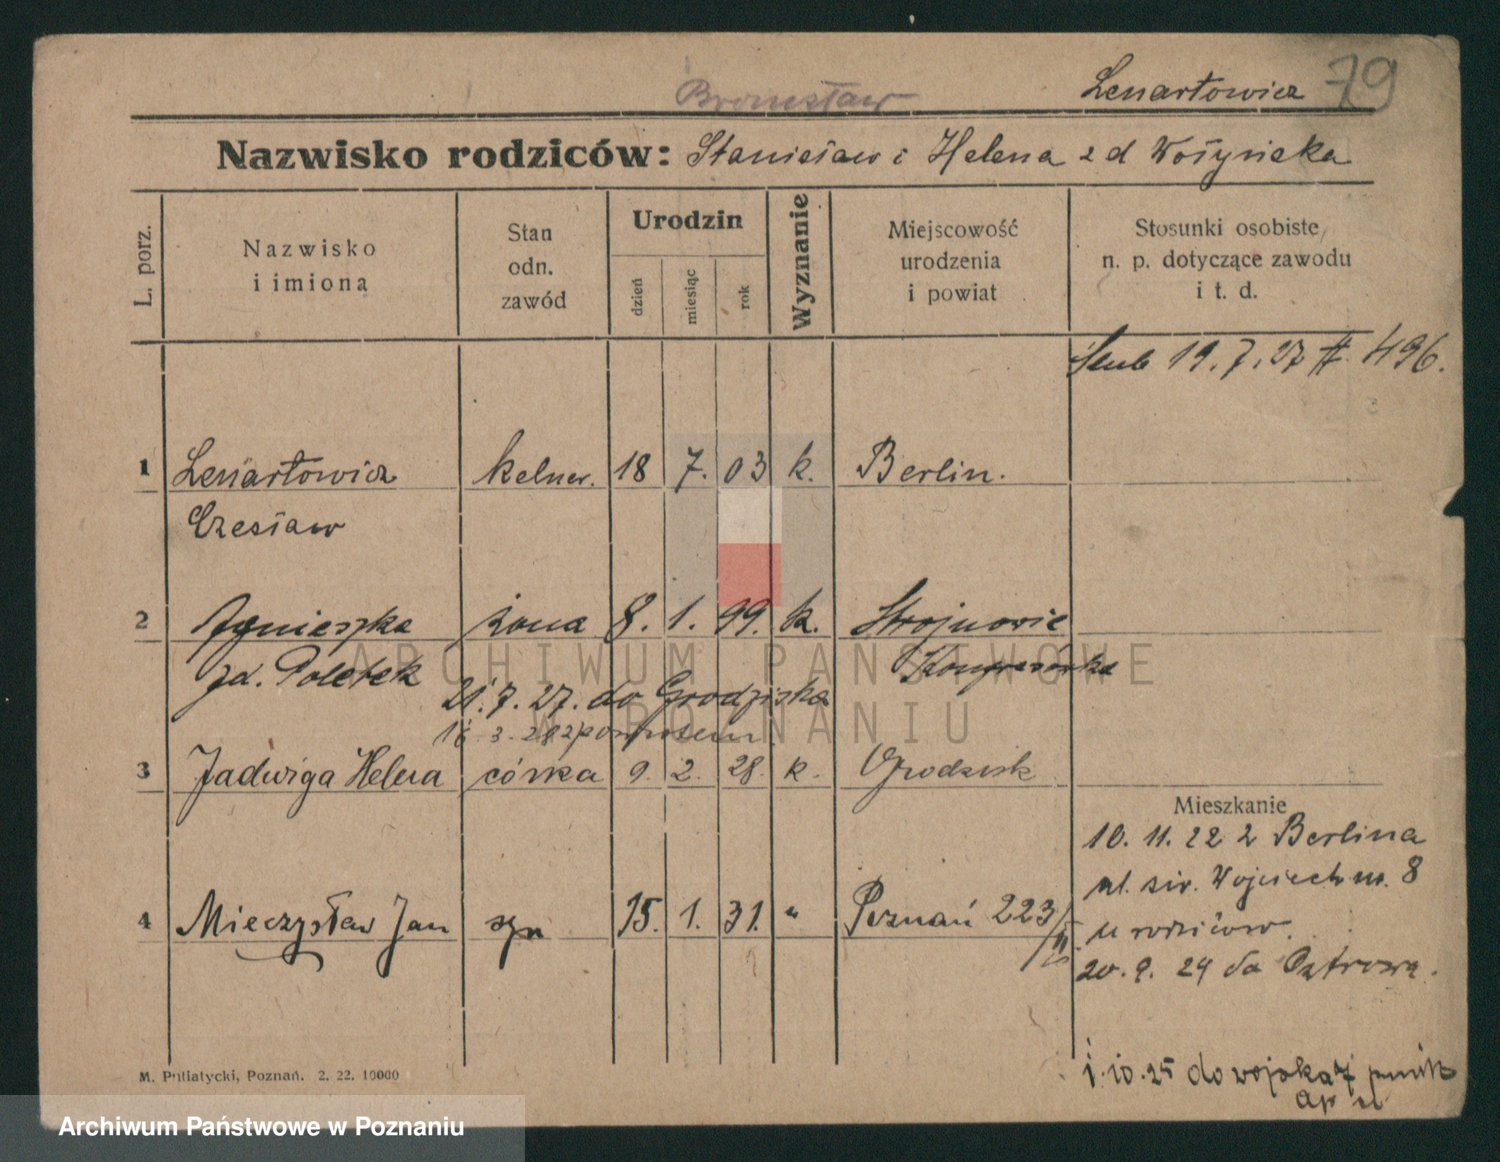 Bronisław Lenartowicz 79
Nazwisko rodziców: Stanisław i Helena z d Wołynicka
L. porz.
Nazwisko i imiona
Stan odn. zawód
Urodzin
dzień
miesiąc
rok
Wyznanie
Miejscowość urodzenia i powiat
Stosunki osobiste, n. p. dotyczące zawodu i t. d.
Ślub 19.7.27 # 496.
1 Lenartowicz kelner. 18 7. 03 k. Berlin.
Czesław
2 Agnieszka żona 8. 1. 99. k. Strojnowie
zd. Poletek Kongresówka
21.7.27. do Grodziska
16.3.28 z powrotem
3 Jadwiga Helena córka 9. 2. 28. k. Grodzisk
Mieszkanie
10.11.22 z Berlina
ul. św. Wojciech nr. 8
u rodziców.
4 Mieczysław Jan syn 15. 1. 31. " Poznań 223/
20.9.24 do Ostrowa.
1.10.25 do wojska 7
M. Putiatycki, Poznań. 2. 22. 10000
ARCHIWUM PAŃSTWOWE
W POZNANIU
Archiwum Państwowe w Poznaniu